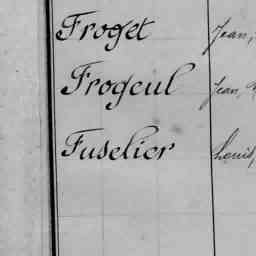 Froget Jean,
Frogeul Jean,
Fuselier Louis,